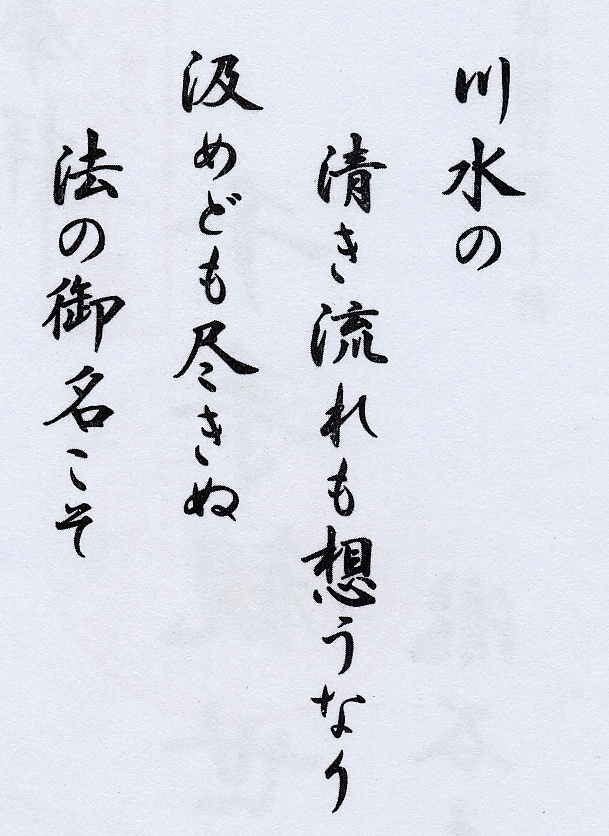 川水の
清き流れも想うなり
汲めども尽きぬ
法の御名こそ